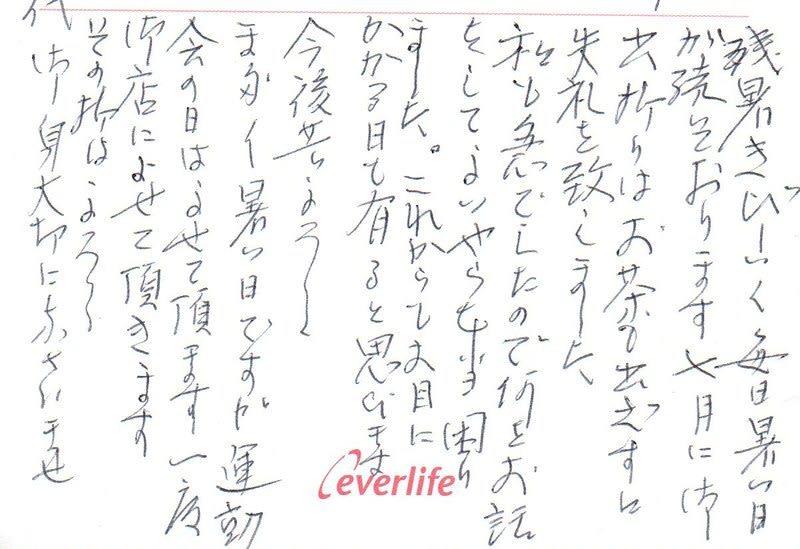 残暑きびしく毎日暑い日
が続いております七月に御
出折りはお茶も出さずに
失礼を致しました
私も急でしたので何をお話
をしてよいやら本当困り
ました。これからもお目に
かかる日も有ると思います
今後共よろしく
まだ々暑い日ですが運動
会の日はよせて頂ます一度
御店によせて頂きます
その折はよろしく
御身大切になさいませ
everlife